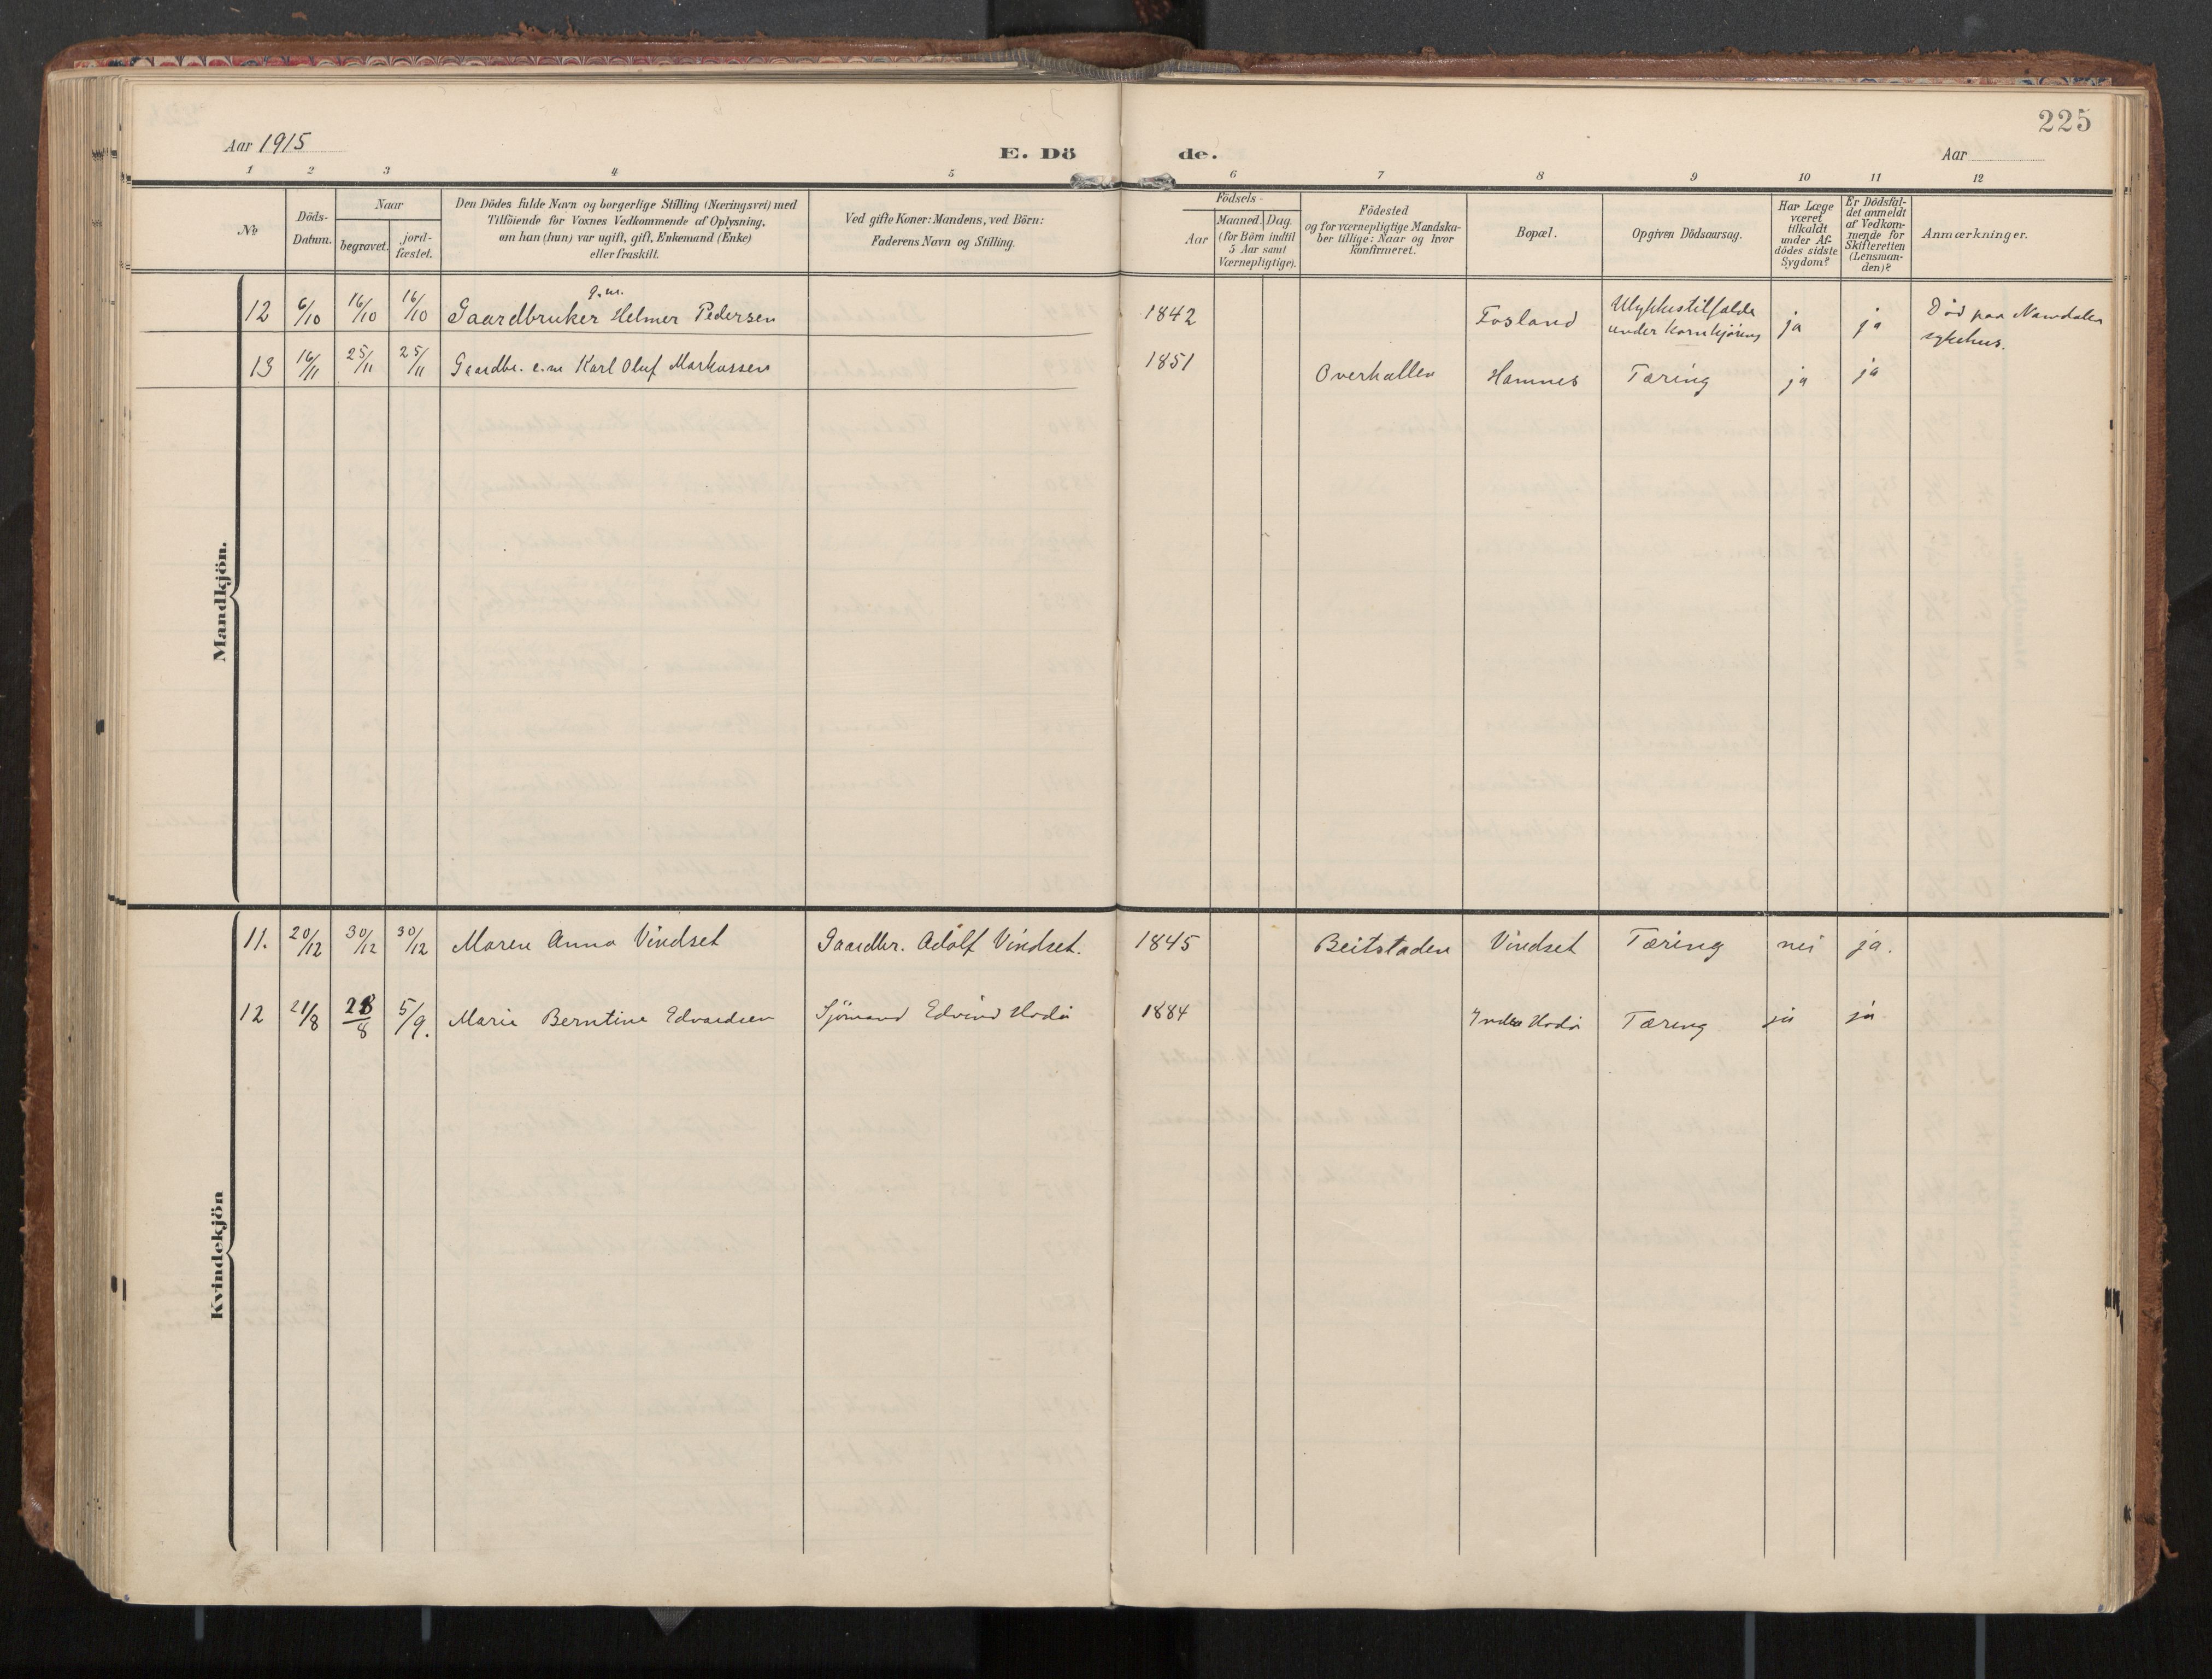 225
Aar 1915
E. Dö de.
Aar
1 2 3 4 5 6 7 8 9 10 11 12
No
Döds-
Datum.
Naar
begravet.
jord-
fæstet.
Den Dödes fulde Navn og borgerlige Stilling (Næringsvei) med
Tilföiende for Voxnes Vedkommende af Oplysning,
om han (hun) var ugift, gift, Enkemand (Enke)
eller fraskilt.
Ved gifte Koner: Mandens, ved Börn:
Faderens Navn og Stilling.
Födsels-
Aar
Maaned. Dag.
(for Börn indtil
5 Aar samt
Værnepligtige).
Födested
og for værnepligtige Mandska-
ber tillige: Naar og hvor
konfirmeret.
Bopæl.
Opgiven Dödsaarsag.
Har Læge
været
tilkaldt
under Af-
dödes sidste
Sygdom?
Er Dödsfal-
det anmeldt
af Vedkom-
mende for
Skifteretten
(Lensman-
den)?
Anmærkninger.
Mandkjön.
g.m.
12 6/10 16/10 16/10 Gaardbruker Helmer Pedersen 1842 Fosland Ulykkestilfælde
under kornkjøring ja ja Död paa Namdalen
sykehus.
13 16/11 25/11 25/11 Gaardbr. e.m Karl Oluf Markussen 1851 Overhallen Hamnes Tæring ja ja
Kvindekjön
11. 20/12 30/12 30/12 Maren Anna Vindset Gaardbr. Adolf Vindset. 1845 Beitstaden Vindset Tæring nei ja.
12 21/8 28/8 5/9. Marie Berntine Edvardsen Sjömand Edvind Hodö 1884 Indre Hodö Tæring ja ja